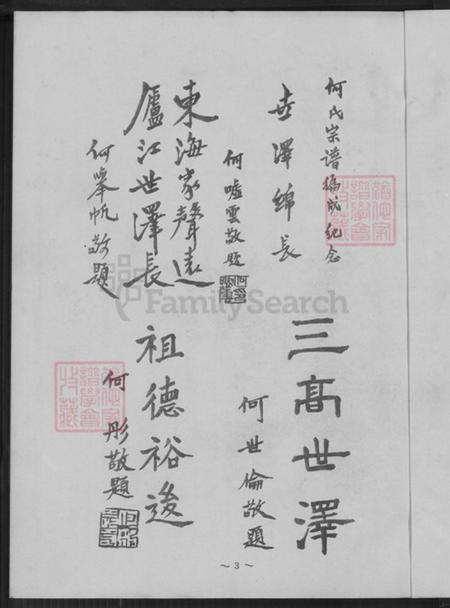 何氏宗譜編成紀念
世澤綿長
何噓雲敬題
東海家聲遠
廬江世澤長
何 敬題
三高世澤
何世倫敬題
祖德裕後
何彤敬題
FamilySearch
~ 3 ~